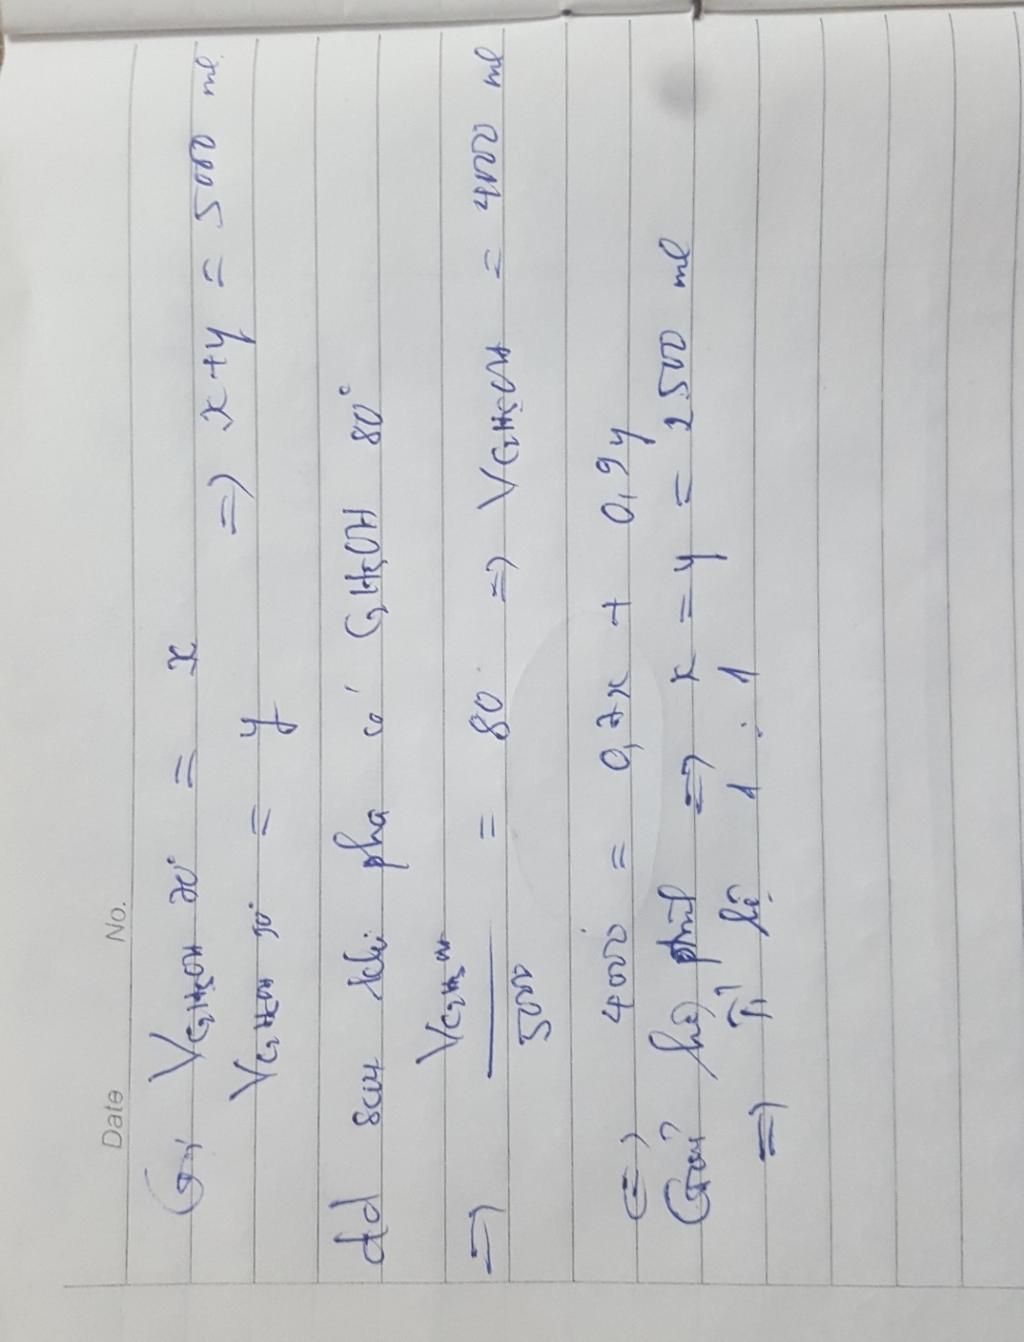 Date No.
Gọi V C2H5OH 70° = x
⇒ x + y = 5000 ml
V C2H5OH 90° = y
dd sau khi pha có C2H5OH 80°
⇒ V C2H5OH / 5000 = 80 ⇒ V C2H5OH = 4000 ml
⇔ 4000 = 0,7x + 0,9y
Giải hệ phương ⇒ x = y = 2500 ml
⇒ Tỉ lệ 1 : 1